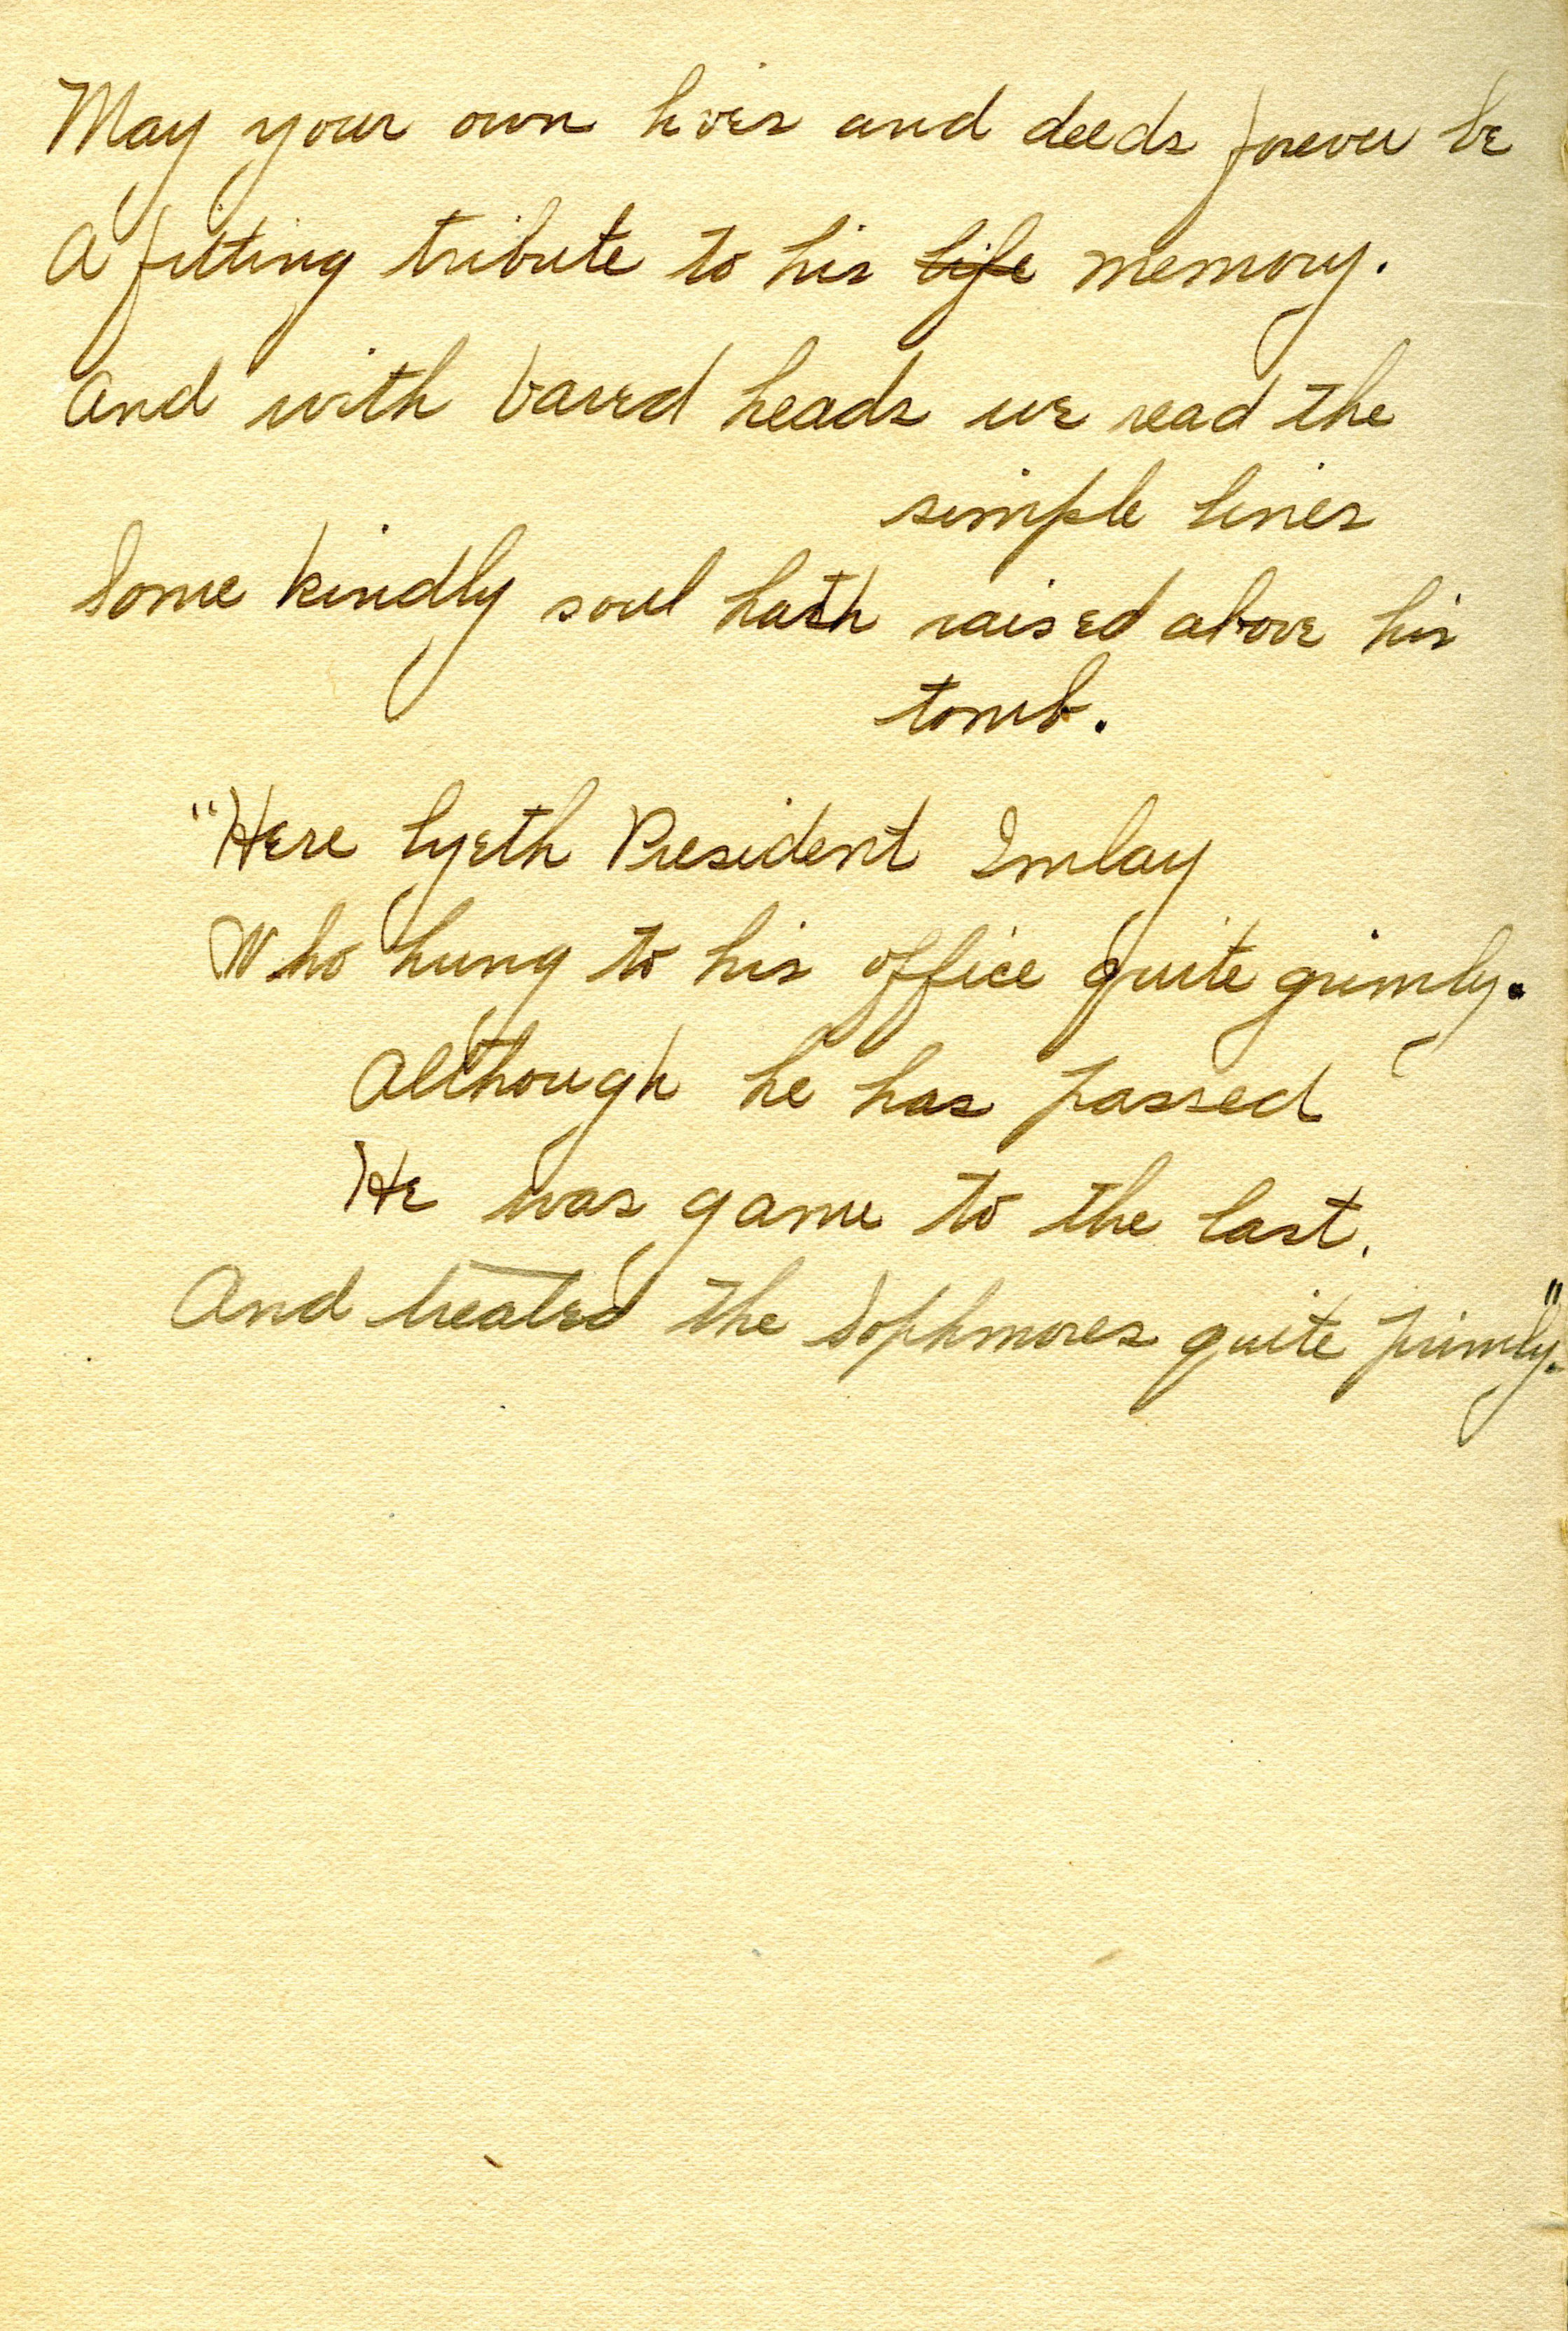 May your own lives and deeds forever be
A fitting tribute to his life memory.
And with bared heads we read the
simple lines
Some kindly soul hath raised above his
tomb.
"Here lyeth President Imlay
Who hung to his office quite grimly.
Although he has passed
He was game to the last.
And treated the Sophmores quite primly."